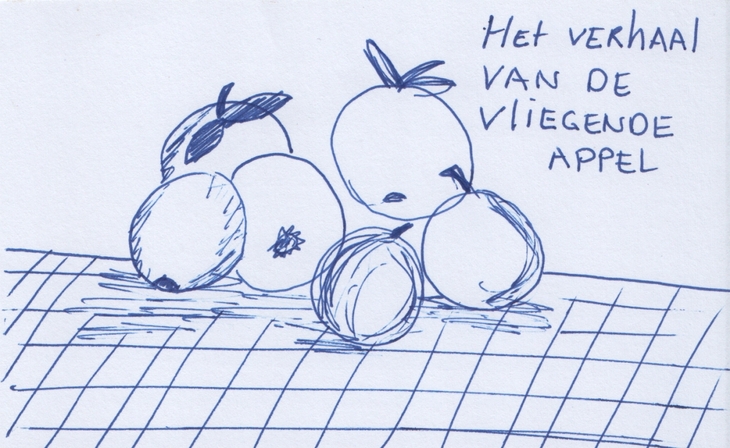 Het verhaal
van de
vliegende
appel